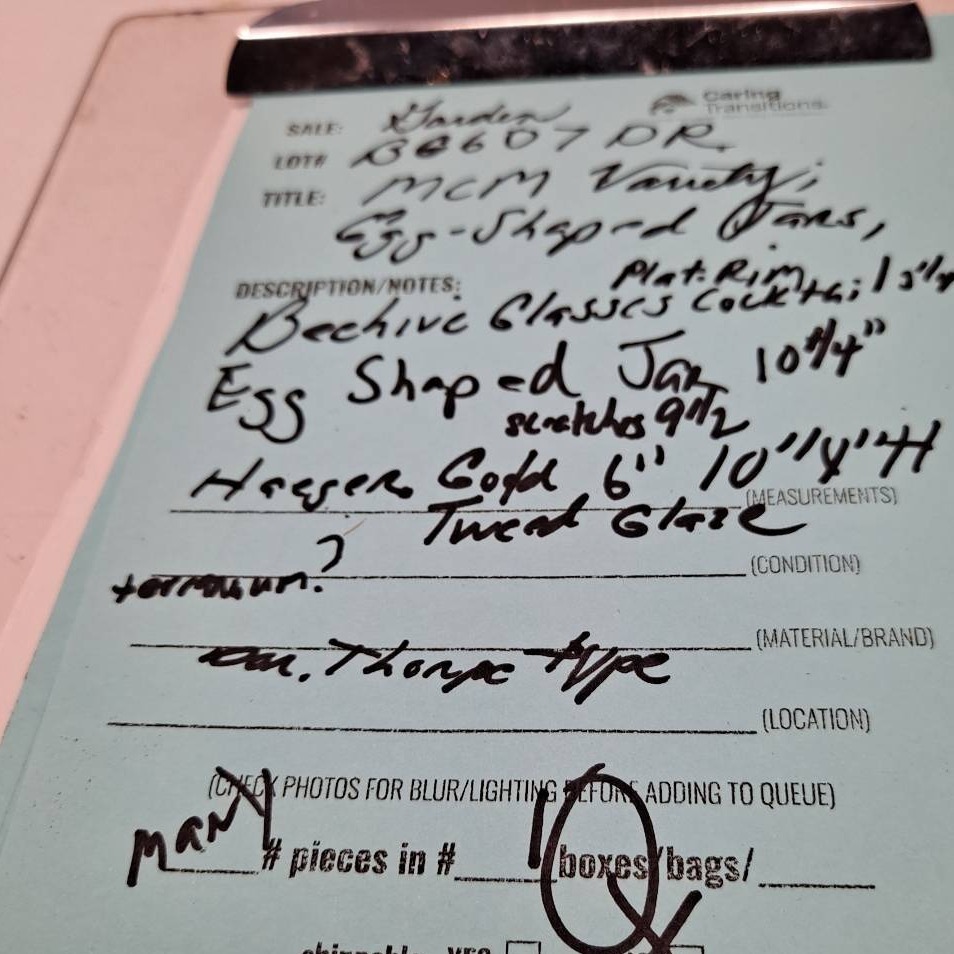 Caring
Transitions.
SALE: Garden
LOT# BC607 DR
TITLE: MCM Variety;
Egg-Shaped Jars,
DESCRIPTION/NOTES: Plat. Rim
Beehive Glasses Cockth; 1 3"/4
Egg Shaped Jar 10"/4"
scratches 9"/2
Haeger Gold 6" 10"/4"H
(MEASUREMENTS)
Tweed Glaze
(CONDITION)
terrarium?
(MATERIAL/BRAND)
Thorpe type
(LOCATION)
(CHECK PHOTOS FOR BLUR/LIGHTING BEFORE ADDING TO QUEUE)
many # pieces in # 1 boxes/bags/
shippable yes